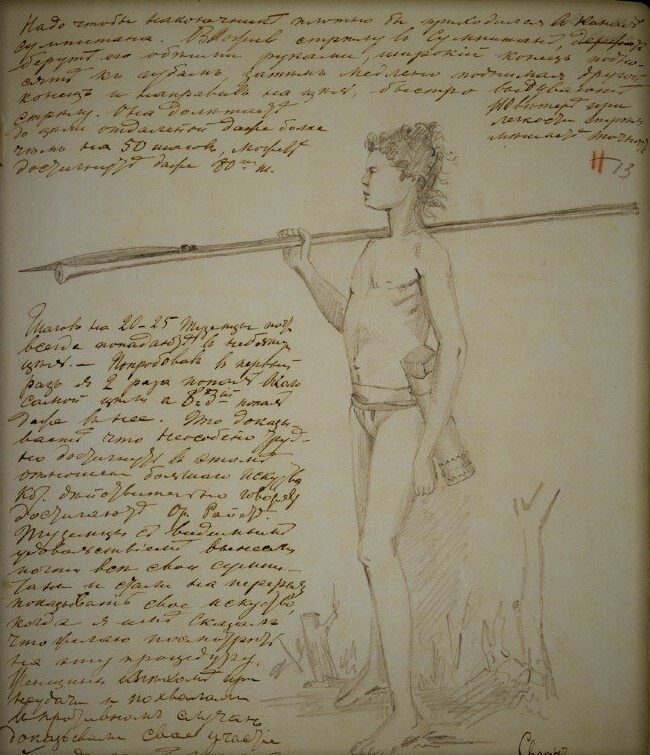 Надо чтобы наконечник плотно бы приходился к каналу
сумпитана. Вложив стрелу в Сумпитан,
берут его обеими руками, широкий конец подно-
сят к губам, затем медленно поднимая другой
конец и направив на цель, быстро выдувают
стрелу. Она долетает
до цели отдаленной даже более
чем на 50 шагов, может
достигнуть даже 80ти ш.
при
легкости стрелы
мешает
H 13
Шагов на 20-25 туземцы поч
всегда попадают в небольш
цель. — Попробовав в первый
раз я 2 раза попал близ
самой цели а в 3ий попал
даже в нее. Это доказы-
вает что неособенно труд-
но достигнуть в этом
отношении большаго искусства
кот. действительно
достигают Ор. Райет.
Туземцы с видимым
удовольствием вынесли
почти все свои сумпи-
таны и стали на перерыв
показывать свое искусство,
когда я им сказал
что желаю посмотреть
на эту процедуру.
Женщины при
неудачи и похвалами
в противном случае
доказывали свое участие